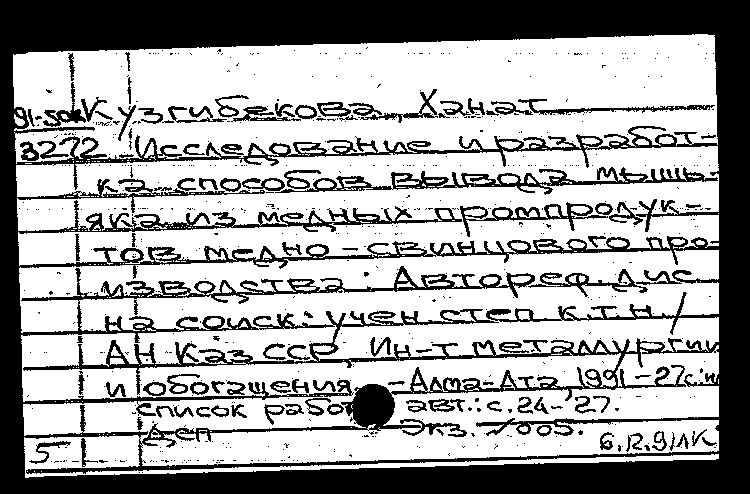 91-50к Кузгибекова, Ханат
3272 Исследование и разработ-
ка способов вывода мышь-
яка из медных промпродук-
тов медно-свинцового про-
изводства: Автореф. дис
на соиск. учен. степ к.т.н./
АН КазССР, Ин-т металлургии
и обогащения. -Алма-Ата, 1991-27с.:ил
список работ авт.: с.24-27.
Деп Экз. 1005.
5 6.12.91 ЛК